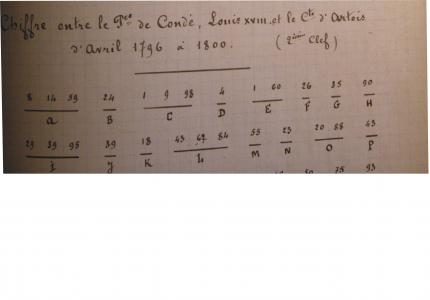 Chiffre entre le Pce de Condé, Louis XVIII. et le Cte d'Artois
d'Avril 1796 à 1800. (2ème Clef)
8 14 59 24 1 9 98 4 1 60 26 35 90
A B C D E F G H
29 39 95 39 18 43 62 84 55 23 20 88 43
i J K L M N O P
75 93